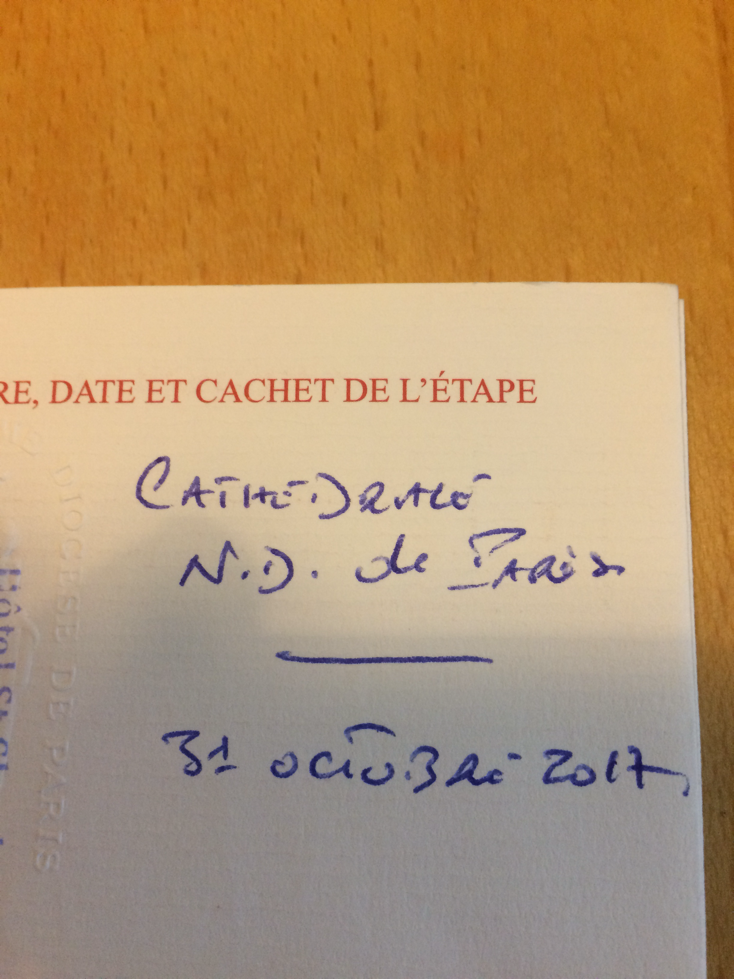 RE, DATE ET CACHET DE L'ÉTAPE
CATHÉDRALE
N.D. de PARIS
31 OCTOBRE 2017
DIOCESE DE PARIS
Hôtel St